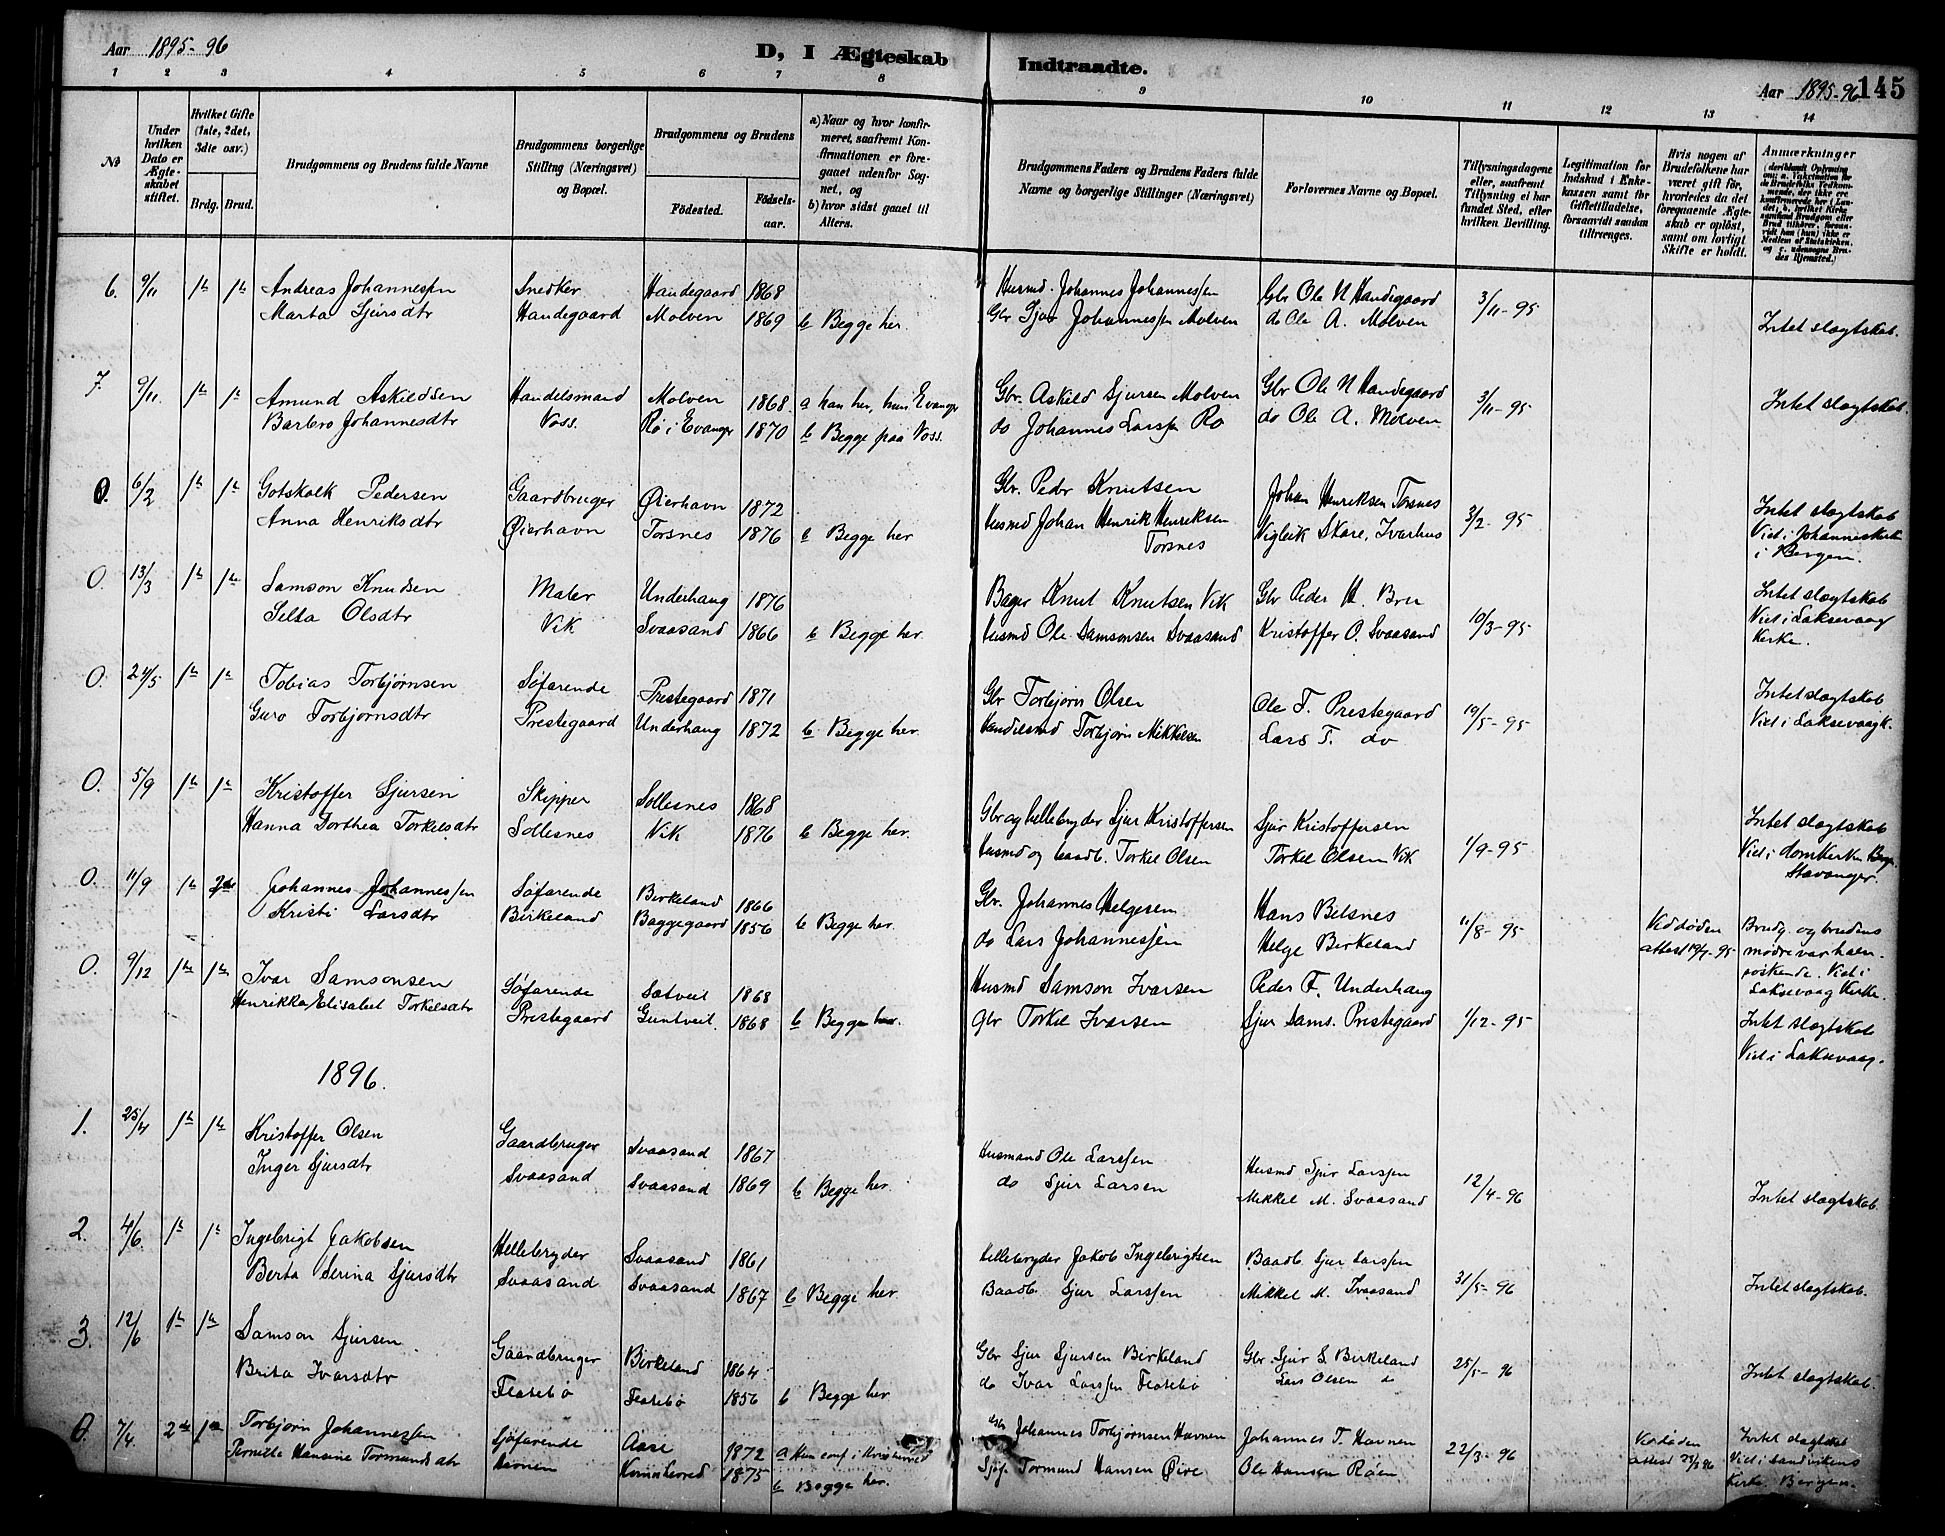 Aar 1895-96
D, I Ægteskab Indtraadte.
Aar 1895-96 145
1 2 3 4 5 6 7 8 9 10 11 12 13 14
No
Under hvilken Dato er Ægteskabet stiftet.
Hvilket Gifte (1ste, 2det, 3die osv.)
Brdg. Brud.
Brudgommens og Brudens fulde Navne
Brudgommens borgerlige Stilling (Næringsvei) og Bopæl.
Brudgommens og Brudens
Fødested. Fødselsaar.
a) Naar og hvor konfirmeret, saafremt Konfirmationen er foregaaet udenfor Sognet, og
b) hvor sidst gaaet til Alters.
Brudgommens Faders og Brudens Faders fulde Navne og borgerlige Stillinger (Næringsvei)
Forlovernes Navne og Bopæl.
Tillysningsdagene eller, saafremt Tillysning ei har fundet Sted, efter hvilken Bevilling.
Legitimation for Indskud i Enkekassen samt for Giftetilladelse, forsaavidt saadan tiltrænges.
Hvis nogen af Brudefolkene har været gift før, hvorledes da det foregaaende Ægteskab er opløst, samt om lovligt Skifte er holdt.
Anmærkninger
6. 9/11 1ste 1ste Andreas Johannessen Snedker Handegaard 1868 Husmd. Johannes Johannessen Gbr Ole N Handegaard 3/11-95
Marta Sjursdtr Handegaard Molven 1869 b Begge her. Gbr Sjur Johannessen Molven do Ole A. Molven Intet slægtskab.
7. 9/11. Amund Askildsen Handelsmand Molven 1868. a han her, hun Evanger Gbr. Askild Sjursen Molven Gbr Ole N Handegaard 3/11-95
Barbro Johannesdtr Voss. Rø i Evanger 1870 b Begge paa Voss. do Johannes Larssen Rø do Ole A. Molven Intet slægtskab.
0. 6/2 Gotskalk Pedersen Gaardbruger Øierhavn 1872 Gbr. Peder Knutsen Johan Henriksen Torsnes
Anna Henriksdtr Øierhavn Torsnes 1876 b Begge her Husmd Johan Henrik Henriksen Torsnes Vigleik Skare, Ivarhus 3/2-95 Intet slægtskab Viet i Johanneskirken i Bergen.
0. 13/3 Samson Knudsen Maler Underhaug 1876 Bager Knut Knutsen Vik Gbr Peder H. Bru
Selta Olsdtr Vik Svaasand 1866 b Begge her. Husmd Ole Samsonsen Svaasand Kristoffer O. Svaasand 10/3-95 Intet slægtskab Viet i Laksevaag Kirke.
0. 24/5 Tobias Torbjørnsen Søfarende Prestegaard 1871 Gbr Torbjørn Olsen Ole T. Prestegaard
Guro Torbjørnsdtr Prestegaard Underhaug 1872 b Begge her. Handelsmd Torbjørn Mikkelsen Lars T. do 19/5-95 Intet slægtskab Viet i Laksevaag k.
0. 5/9 Kristoffer Sjursen Skipper Sollesnes 1868 Gbr og hellebryder Sjur Kristoffersen Sjur Kristoffersen
Hanna Dorthea Torkelsdtr Sollesnes Vik 1876 b Begge her. Husmd og baadb. Torkel Olsen Torkel Olsen Vik 1/9-95 Intet slægtskab Viet i domkirken Stavanger.
0. 11/9 Johannes Johannessen Søfarende Birkeland 1866 Gbr. Johannes Helgesen Hans Belsnes
Kristi Larsdtr Birkeland Baggegaard 1856 b Begge her. do Lars Johannessen Helge Birkeland 11/8-95 Ved døden attest 19/7-95 Brudg. og brudens mødre var halvsøskende. Viet i Laksevaag Kirke.
0. 9/12 Ivar Samsonsen Søfarende Sætveit 1868 Husmd Samson Ivarsen Peder F. Underhaug
Henrikka Elisabet Torkelsdtr Prestegaard Guntveit 1868 b Begge her. Gbr Torkel Ivarsen Sjur Sams. Prestegaard 1/12-95 Intet slægtskab Viet i Laksevaag.
1896.
1. 25/4 Kristoffer Olsen Gaardbruger Svaasand 1867 Husmand Ole Larssen Husmd Sjur Larssen
Inger Sjursdtr Svaasand Svaasand 1869 b Begge her. do Sjur Larsen Mikkel M. Svaasand 12/4-96 Intet slægtskab.
2. 4/6 Ingebrigt Jakobsen Hellebryder Svaasand 1861 Hellebryder Jakob Ingebrigtsen Baadb. Sjur Larssen
Berta Serina Sjursdtr Svaasand Svaasand 1867 b Begge her. Baadb. Sjur Larssen Mikkel M. Svaasand 31/5-96 Intet slægtskab.
3. 12/6 Samson Sjursen Gaardbruger Birkeland 1864 Gbr Sjur Sjursen Birkeland Gbr. Sjur S. Birkeland 25/5-96
Brita Ivarsdtr Flatebø Flatebø 1856 b Begge her. do Ivar Larssen Flatebø Lars Olsen do Intet slægtskab.
0. 7/4. Torbjørn Johannessen Sjøfarende Aase 1872 Johannes Torbjørnsen Havnen Johannes T. Havnen 22/3-96
Pernille Hansine Tormundsdtr Havnen 1875 b Begge her. Sjøf Tormund Hansen Øire Ole Hansen Røen Ved døden attest Intet slægtskab Viet i Sandvikens Kirke Bergen.